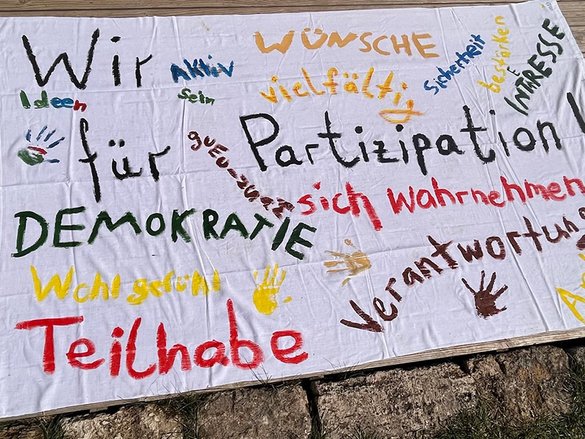 Wir
Aktiv
Sein
WÜNSCHE
Sicherheit
bestärken
INTERESSE
Ideen
vielfältig
für
Partizipation!
sich Wahrnehmen
DEMOKRATIE
Verantwortung
Wohlgefühl
Teilhabe